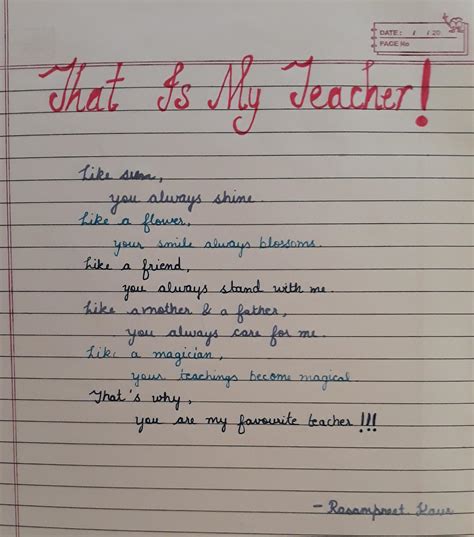 DATE: / / 20
PAGE No
That Is My Teacher!
Like sun,
you always shine.
Like a flower,
your smile always blossoms.
Like a friend,
you always stand with me.
Like a mother & a father,
you always care for me.
Like a magician,
your teachings become magical.
That's why,
you are my favourite teacher!!!
- Rasampreet Kaur